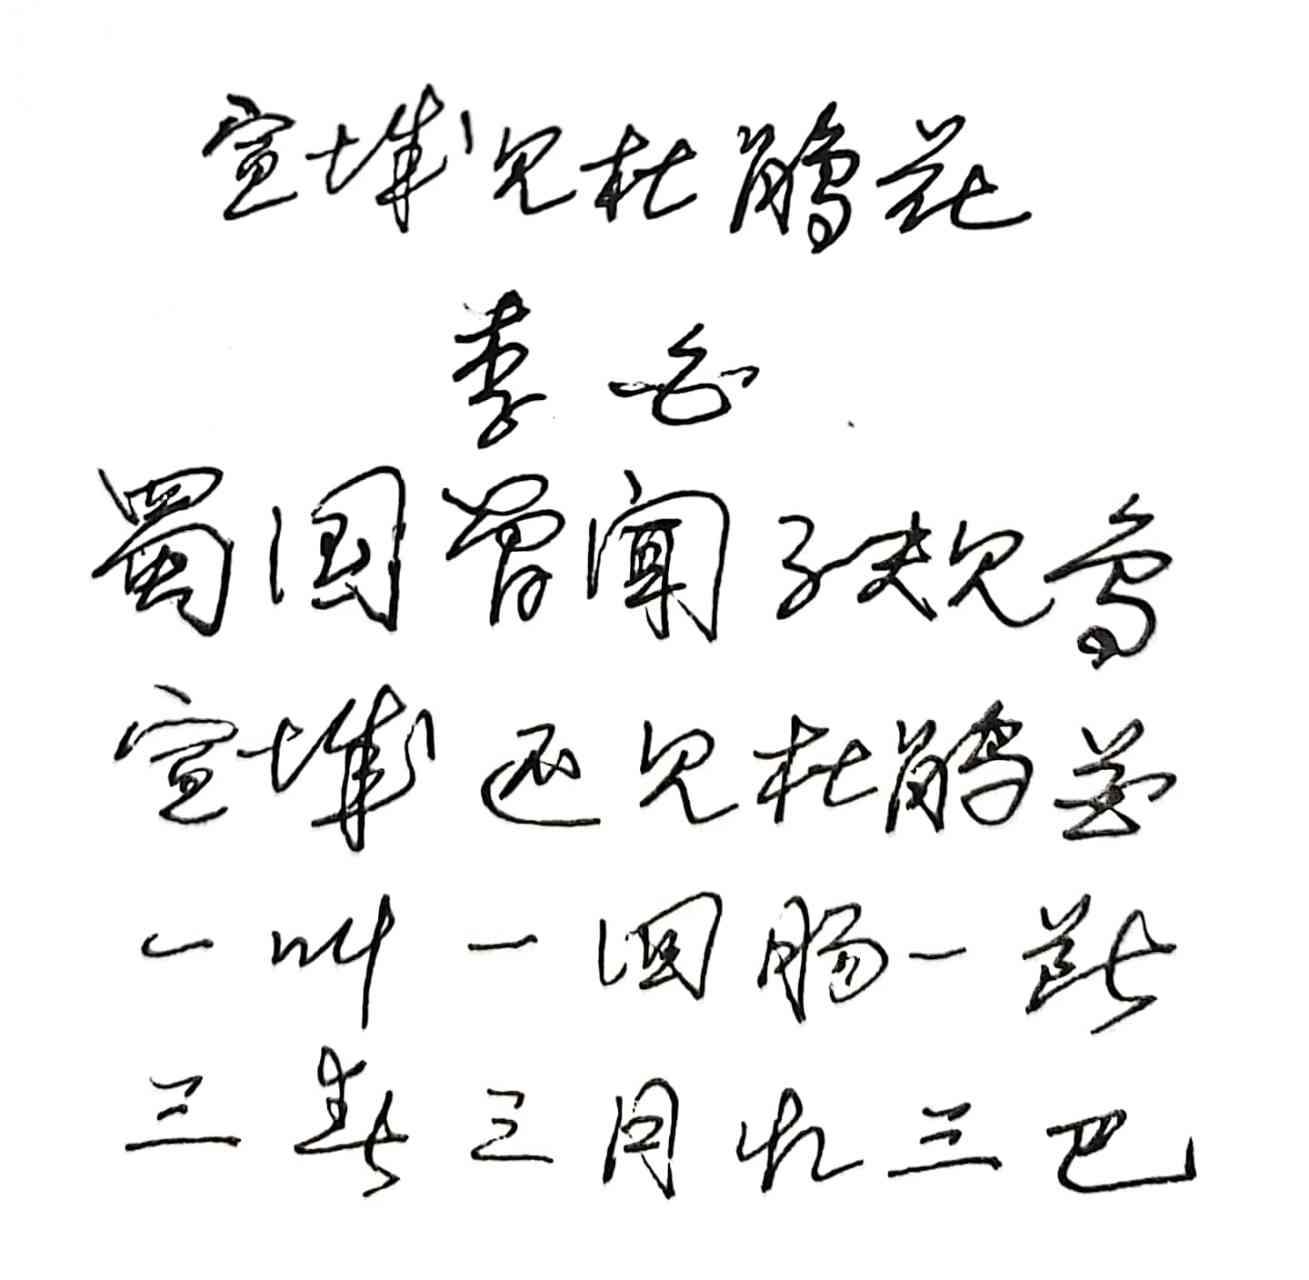 宣城见杜鹃花
李白
蜀国曾闻子规鸟
宣城还见杜鹃花
一叫一回肠一断
三春三月忆三巴